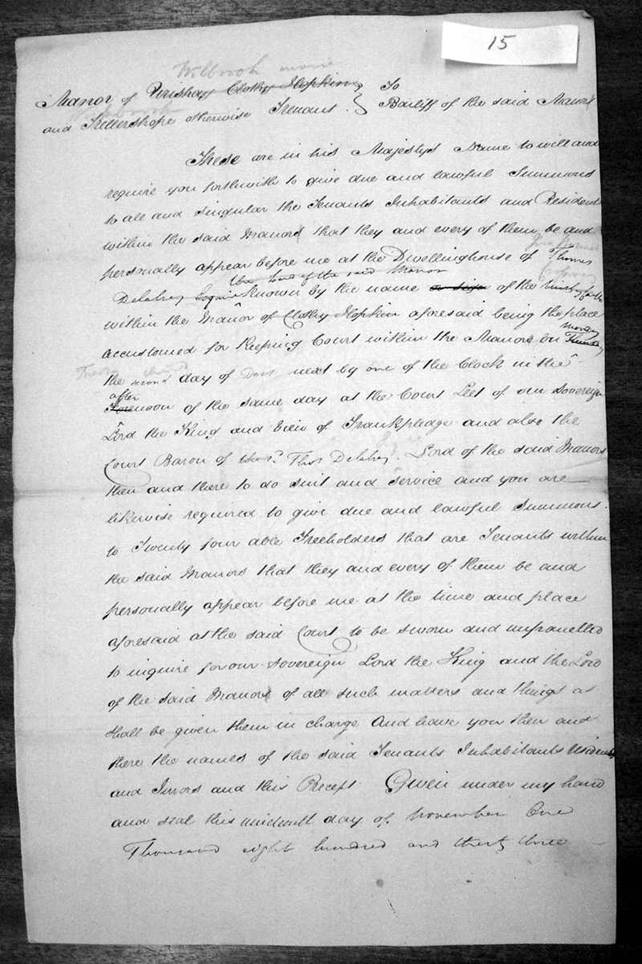 15
Manor of Urishay Clothy Hopkin To
and Killershope otherwise Trenant. Bailiff of the said Manors
These are in his Majestys Name to will and
require you forthwith to give due and lawful Summons
to all and singular the Tenants Inhabitants and Residents
within the said Manors that they and every of them be and
personally appear before me at the Dwellinghouse of
the Lord of the said Manor
Delahay Esquire known by the name or sign of the
within the Manor of Clothy Hopkin aforesaid being the place
Monday
accustomed for keeping Court within the Manors on
the day of next by one of the Clock in the
after
Forenoon of the same day at the Court Leet of our Sovereign
Lord the King and View of Frankpledge and also the
Court Baron of Delahay Lord of the said Manors
then and there to do suit and service and you are
likewise required to give due and lawful Summons
to Twenty four able Freeholders that are Tenants within
the said Manors that they and every of them be and
personally appear before me at the time and place
aforesaid at the said Court to be sworn and impanelled
to inquire for our Sovereign Lord the King and the Lord
of the said Manors of all such matters and things as
shall be given them in charge And have you then and
there the names of the said Tenants Inhabitants
and Jurors and this Precept Given under my hand
and seal this day of November One
Thousand eight hundred and thirty three